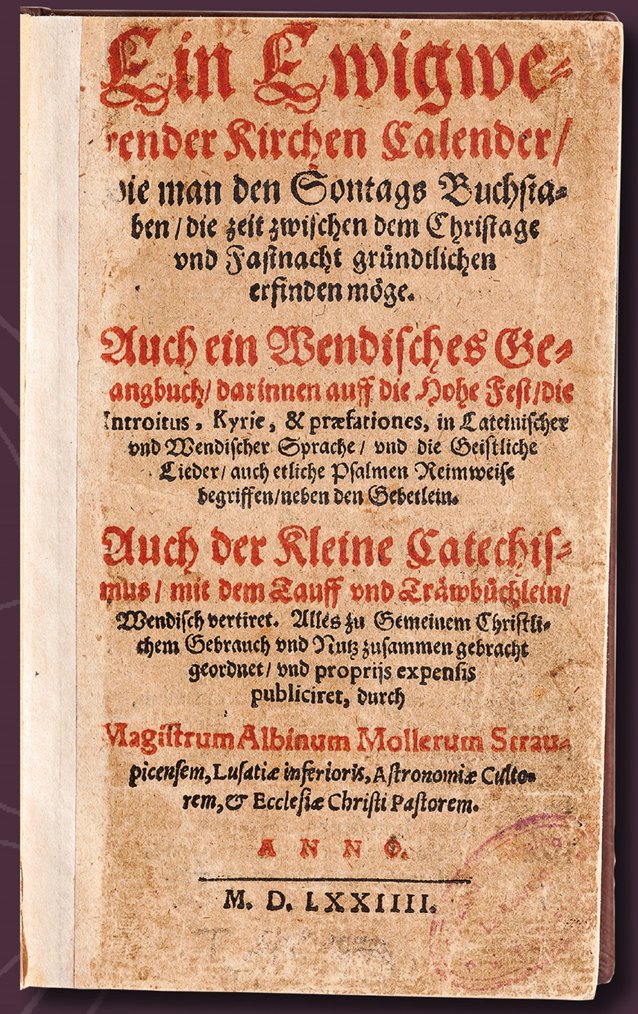 Ein Ewigwe⸗
render Kirchen Calender/
die man den Sontags Buchsta⸗
ben/die zeit zwischen dem Christage
vnd Fastnacht gründtlichen
erfinden möge.
Auch ein Wendisches Ge⸗
angbuch/darinnen auff die Hohe Fest/die
Introitus, Kyrie, & præfationes, in Lateinischer
vnd Wendischer Sprache/ vnd die Geistliche
Lieder/auch etliche Psalmen Reimweise
begriffen/neben den Gebetlein.
Auch der Kleine Catechis⸗
mus/ mit dem Tauff vnd Träwbüchlein/
Wendisch vertiret. Alles zu Gemeinem Christli⸗
chem Gebrauch vnd Nutz zusammen gebracht
geordnet/ vnd proprijs expensis
publiciret, durch
Magistrum Albinum Mollerum Strau⸗
picensem, Lusatiæ inferioris, Astronomiæ Culto⸗
rem, & Ecclesiæ Christi Pastorem.
ANNO.
M. D. LXXIIII.